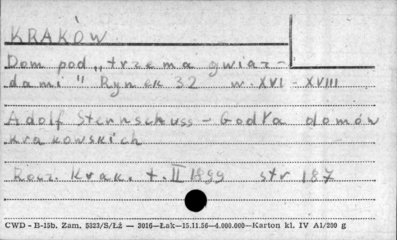 KRAKÓW
Dom pod „trzema gwiaz-
dami" Rynek 32 w. XVI - XVIII
Adolf Sternschuss - Godła domów
krakowskich
Rocz. Krak. t. II 1899 str 187
CWD - B-15b. Zam. 5323/S/Łż — 3016—Łak—15.11.56—4.000.000—Karton kl. IV A1/200 g